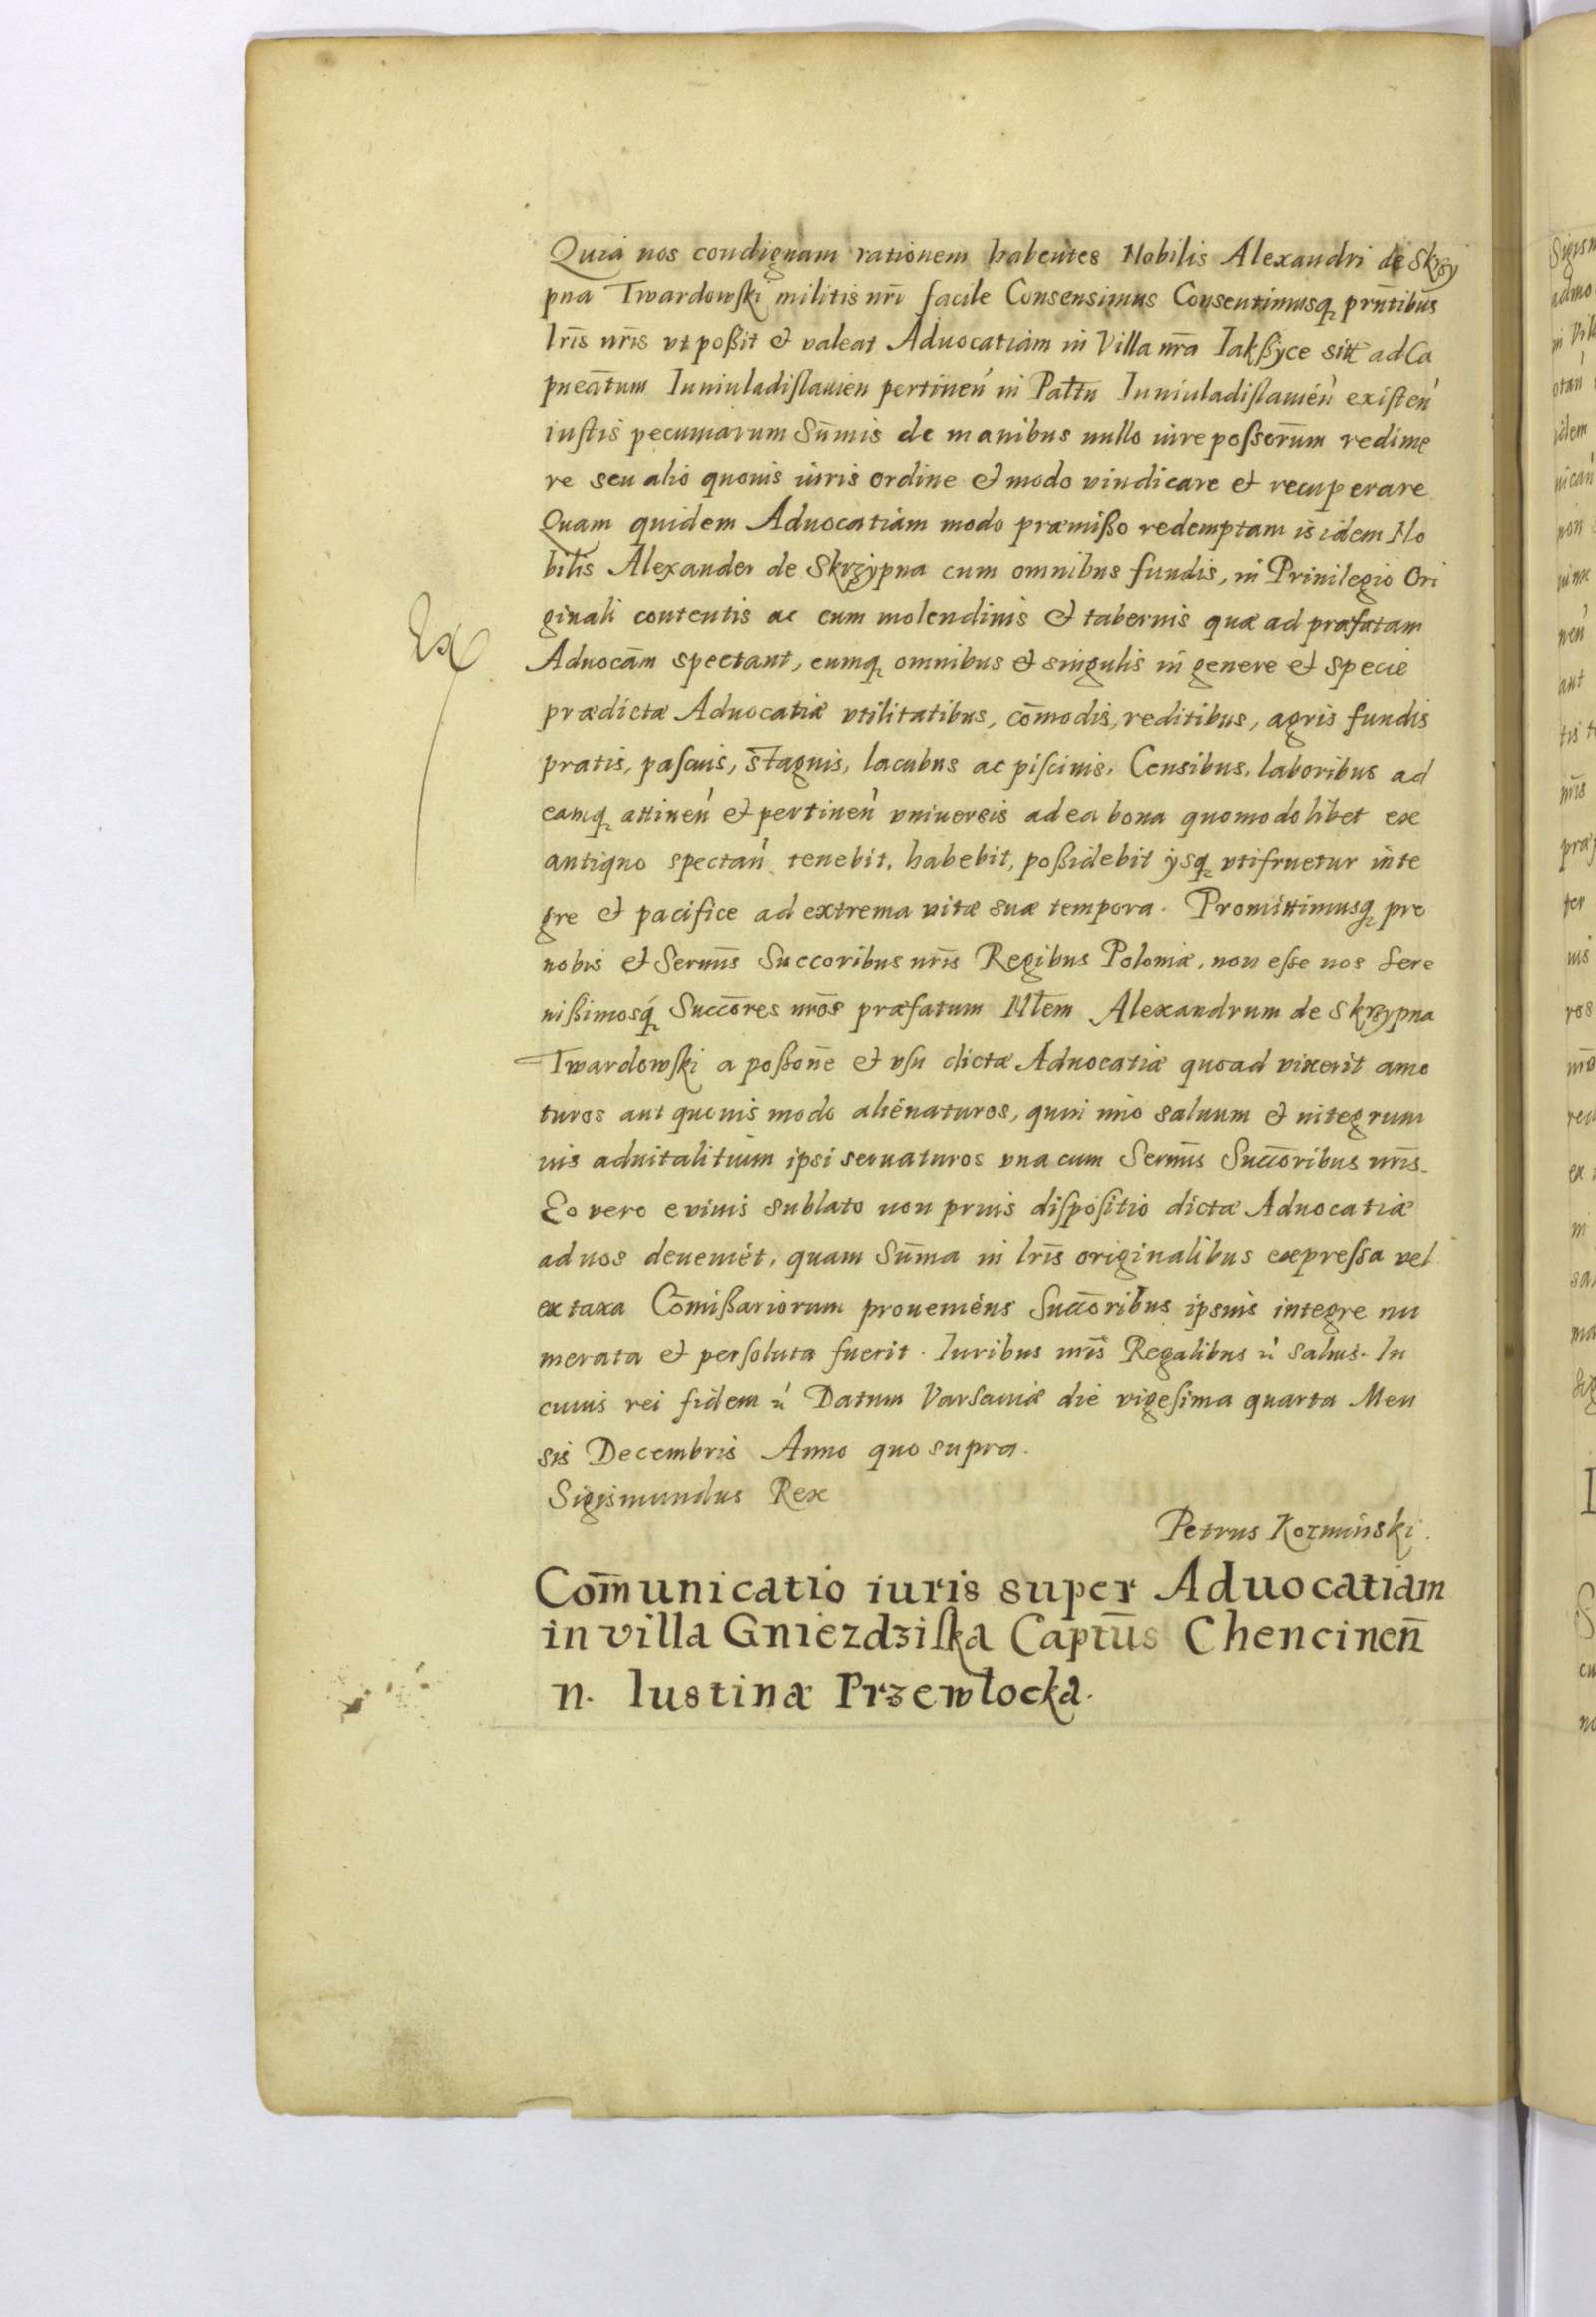 Quia nos condignam rationem habentes Nobilis Alexandri de Skrzy
pna Twardowski militis nr̄i facile Consensimus Consentimusq₂ prn̄tibus
lr̄is nr̄is vt poßit & valeat Aduocatiam in Villa nr̄a Iakßyce sitt̄ ad Ca
pnea̅tum Iuniuladislauien pertinen̓ in Pałtu Iuniuladislauien̓ existen̓
iustis pecuniarum Sum̄is de manibus nullo iure possor̄um redime
re seu alio quouis iuris ordine & modo vindicare et recuperare
Quam quidem Aduocatiam modo præmißo redemptam is idem No
bilis Alexander de Skrzypna cum omnibus fundis, in Priuilegio Ori
ginali contentis ac cum molendinis & tabernis quæ ad præfatam
Ex
Aduocam̄ spectant, cumq₂ omnibus & singulis in genere et specie
prædictæ Aduocatiæ vtilitatibus, com̄odis, reditibus, agris fundis
pratis, pascuis, stagnis, lacubus ac piscinis, Censibus, laboribus ad
eamq₂ attinen̓ & pertinen̓ vniuersis ad ea bona quomodolibet ex
antiquo spectan̓ tenebit, habebit, poßidebit ijsq₂ vtifruetur inte
gre & pacifice ad extrema vitæ suæ tempora. Promittimusq₂ pro
nobis & Serm̄is Succoribus nr̄is Regibus Poloniæ, non esse nos Sere
nißimosq₂ Succōres nr̄os præfatum Nłem Alexandrum de Skrzypna
Twardowski a possone̅ et vsu dictæ Aduocatiæ quoad vixerit amo
turos aut quouis modo alienaturos, quin imo saluum & integrum
ius aduitalitium ipsi seruaturos vna cum Serm̄is Succōribus nr̄is.
Eo vero e viuis sublato non prius dispositio dictæ Aduocatiæ
ad nos deueniet, quam Sum̄a in lr̄is originalibus expressa vel
ex taxa Com̄ißariorum proueniens Succōribus ipsius integre nu
merata et persoluta fuerit. Iuribus nr̄is Regalibus &̓ saluis. In
cuius rei fidem &̓ Datum Varsauiæ die vigesima quarta Men
sis Decembris Anno quo supra.
Sigismundus Rex
Petrus Kozminski.
Com̄unicatio iuris super Aduocatiam
in villa Gniezdziska Captūs Chencinen̄
n. Iustinæ Przewłocka.